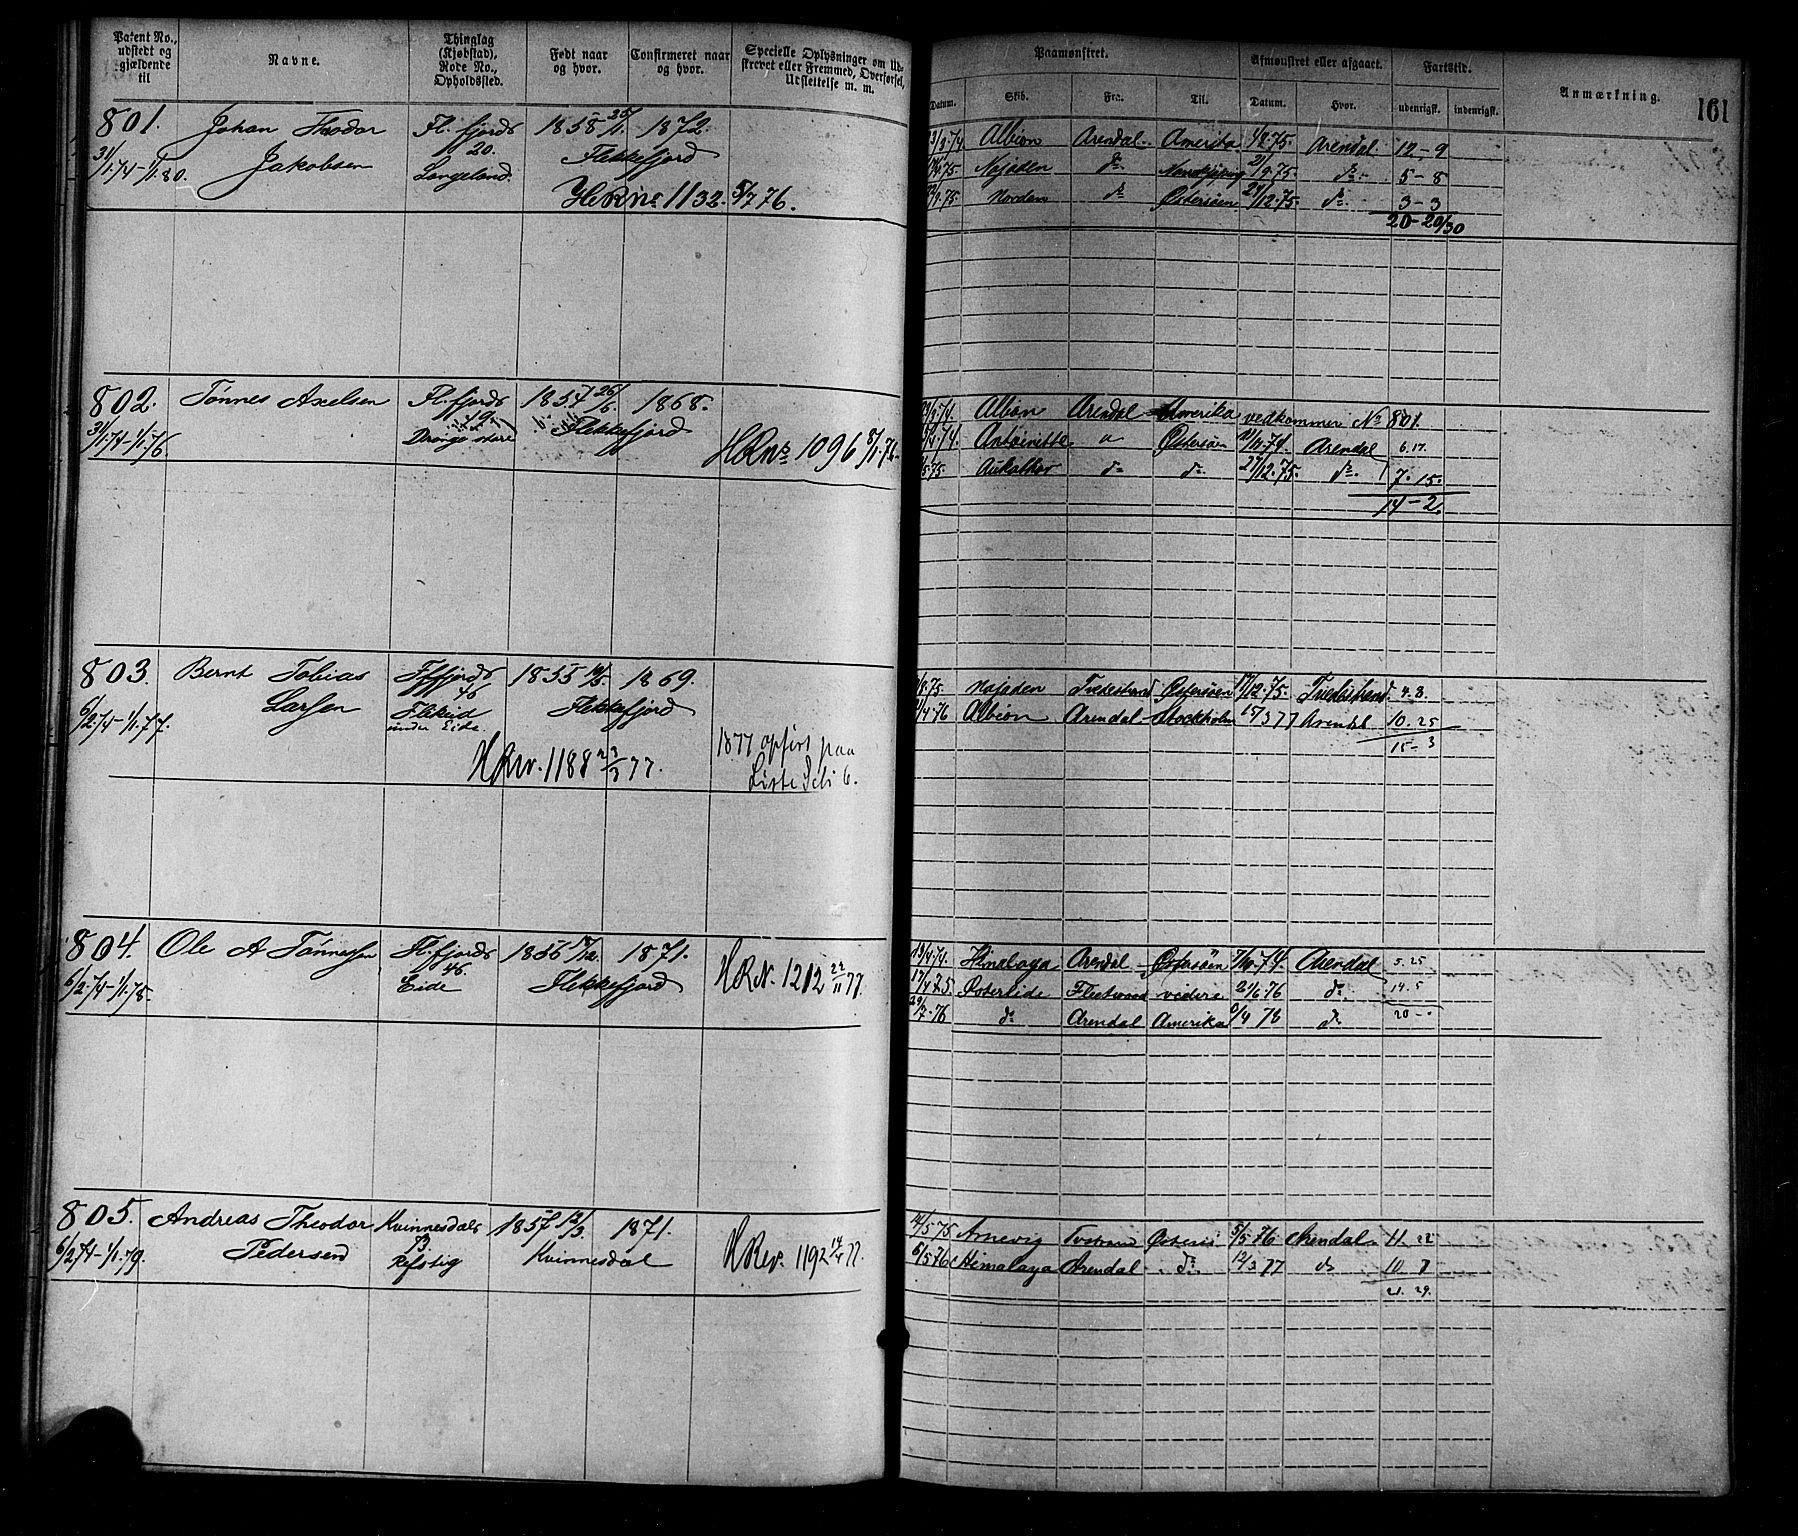 Patent No., udstedt og gjældende til
Navne.
Thinglag (Kjøbstad), Rode No., Opholdssted.
Født naar og hvor.
Confirmeret naar og hvor.
Specielle Oplysninger om Udskrevet eller Fremmed, Overførsel, Udslettelse m. m.
Paamønstret.
Datum. Skib. Fra. Til.
Afmønstret eller afgaaet.
Datum. Hvor.
Fartstid.
udenrigsk. indenrigsk.
Anmærkning.
161
801. Johan Theodor Fl.fjords 1858 25/1. 1872.
31/1.74–1/1.80. Jakobsen 20. Flekkefjord
Langeland.
HRNo 1132. 5/7 76.
Albion Arendal Amerika 4/2.75. Arendal 12–9
Najaden do 21/9.75. do 5–8
Norden do Østersøen 27/12.75. do 3–3
20–20/30
802. Tønnes Axelsen Fl.fjords 1854 26/6. 1868.
31/1.74–1/1.76. 49. Flekkefjord
Drange
HRNo 1096 8/1.76.
Albion Arendal Amerika vedkommer No 801.
Antoinette Østersøen Arendal 6.17.
do do 27/12.75. do 7.15.
14–2.
803. Bernt Tobias Fl.fjords 1855 1869.
6/2.74–1/1.77. Larsen 46 Flekkefjord
Flikeid
under Eide.
HRev. 1188 23/3 77.
1877 opført paa
Liste
Najaden Tvedestrand Østersøen 17/12.75. Tvedestrand 4.8.
Albion Arendal Stockholm 15/3 77 Arendal 10.25
15–3
804. Ole A Tønnessen Fl.fjords 1856 1871.
6/2.74–1/1.78. 46. Flekkefjord
Eide
HRN. 1212 22/11 77.
13/4.74. Himalaya Arendal Østersøen 7/10.74. Arendal 5.25
17/4 75 Østerlide Fleetwood videre 21/6 76 do 14.5
29/7.76 do Arendal Amerika do 20
805. Andreas Theodor Kvinnesdals 1857 12/3. 1871.
6/2.74–1/1.79. Pedersen 13. Kvinnesdal
Refstig
HRev. 1192 14/4 77.
14/5 75 Arnevig 5/5 76 Arendal 11. 22
6/5 76 Himalaya Arendal do 12/3 77 do 10 7
21. 29.